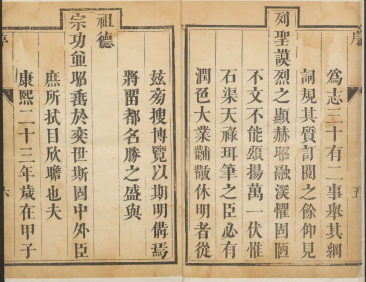 序
五
爲志三十有二事舉其綱
詞規其質訂閱之餘仰見
列聖謨烈之顯赫昭融深懼固陋
不文不能頌揚萬一伏惟
石渠天祿珥筆之臣必有
潤色大業黼黻休明者從
茲旁搜博覽以期明備焉
將留都名勝之盛與
祖德
宗功並昭垂於奕世斯固中外臣
庶所拭目欣瞻也夫
康熙二十三年歲在甲子
序
六